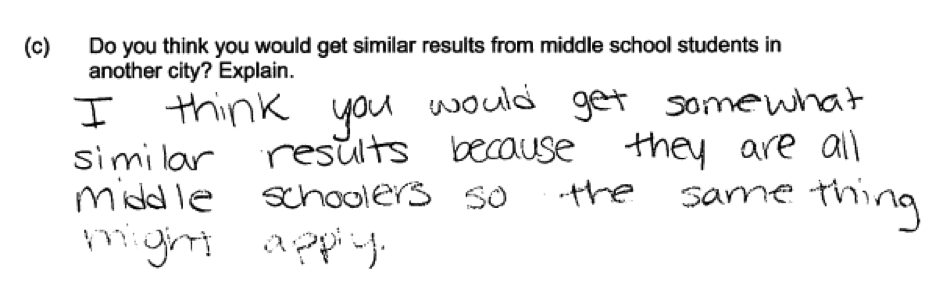 (c) Do you think you would get similar results from middle school students in
another city? Explain.
I think you would get somewhat
similar results because they are all
middle schoolers so the same thing
might apply.